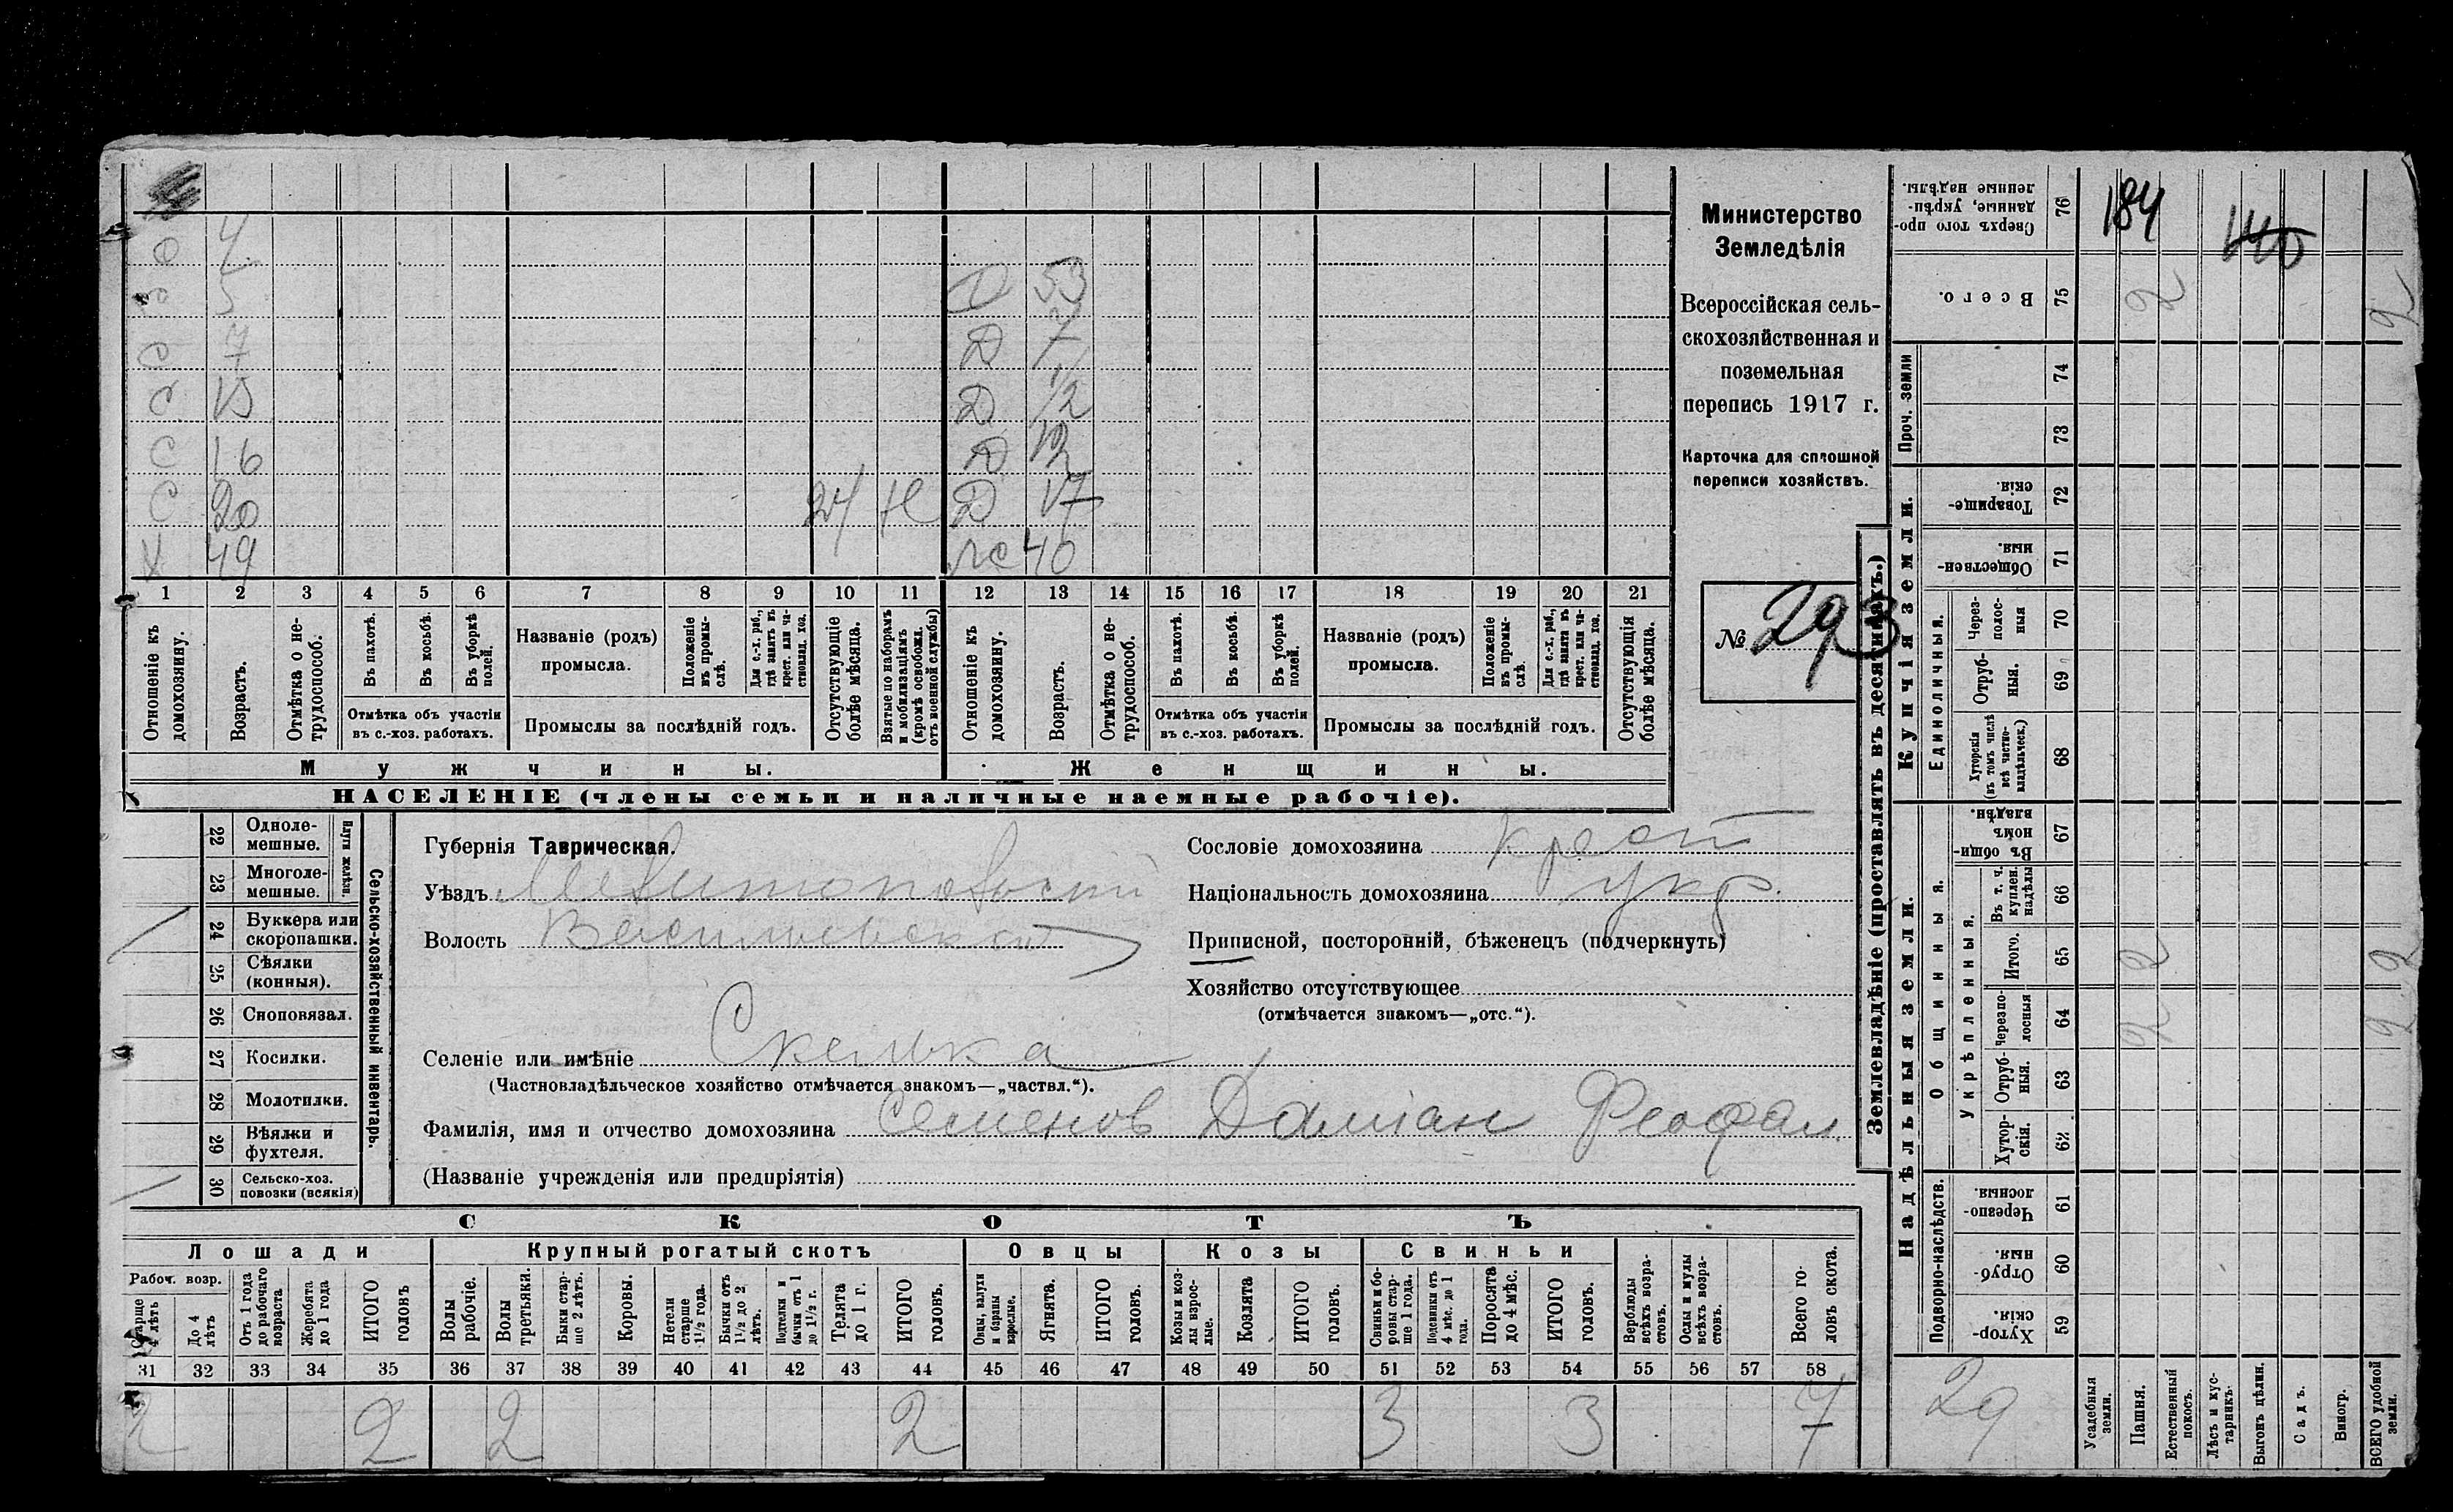 О 4
5 D 53
С 7 D 7
С 15 D 1/2
С 16 D 12
С 20 24 Н D 17
Х 49 40
1 2 3 4 5 6 7 8 9 10 11 12 13 14 15 16 17 18 19 20 21
Отношеніе къ домохозяину.
Возрастъ.
Отмѣтка о нетрудоспособ.
Въ пахотѣ.
Въ косьбѣ.
Въ уборкѣ полей.
Отмѣтка объ участіи въ с.-хоз. работахъ.
Названіе (родъ) промысла.
Положеніе въ промыслѣ.
Для с.-х. раб., гдѣ занятъ въ крест. или частновлад. хоз.
Промыслы за послѣдній годъ.
Отсутствующіе болѣе мѣсяца.
Взятые по наборамъ и мобилизаціямъ (кромѣ освобожд. отъ военной службы)
Отношеніе къ домохозяину.
Возрастъ.
Отмѣтка о нетрудоспособ.
Въ пахотѣ.
Въ косьбѣ.
Въ уборкѣ полей.
Отмѣтка объ участіи въ с.-хоз. работахъ.
Названіе (родъ) промысла.
Положеніе въ промыслѣ.
Для с.-х. раб., гдѣ занята въ крест. или частновлад. хоз.
Промыслы за послѣдній годъ.
Отсутствующія болѣе мѣсяца.
Мужчины.
Женщины.
НАСЕЛЕНІЕ (члены семьи и наличные наемные рабочіе).
Министерство
Земледѣлія
Всероссійская сель-
скохозяйственная и
поземельная
перепись 1917 г.
Карточка для сплошной
переписи хозяйствъ.
№ 293
22 Одноле-мешные.
23 Многоле-мешные.
Плуги желѣзн.
24 Буккера или скоропашки.
25 Сѣялки (конныя).
26 Сноповязал.
27 Косилки.
28 Молотилки.
29 Вѣялки и фухтеля.
30 Сельско-хоз. повозки (всякія)
Сельско-хозяйственный инвентарь.
Губернія Таврическая.
Уѣздъ Мелитопольскій
Волость Васильевская
Селеніе или имѣніе Скелька
(Частновладѣльческое хозяйство отмѣчается знакомъ—„частвл.“).
Фамилія, имя и отчество домохозяина Семенов Даміан Феофал
(Названіе учрежденія или предпріятія)
Сословіе домохозяина крест
Національность домохозяина укр.
Приписной, посторонній, бѣженецъ (подчеркнуть)
Хозяйство отсутствующее
(отмѣчается знакомъ—„отс.“).
СКОТЪ
Лошади
Крупный рогатый скотъ
Овцы
Козы
Свиньи
Рабоч. возр.
Старше 4 лѣтъ
До 4 лѣтъ
Отъ 1 года до рабочаго возраста
Жеребята до 1 года
ИТОГО головъ
Волы рабочіе.
Волы третьяки.
Быки старше 2 лѣтъ.
Коровы.
Нетели старше 1½ года.
Бычки отъ 1½ до 2 лѣтъ.
Подтелки и бычки отъ 1 до 1½ г.
Телята до 1 г.
ИТОГО головъ.
Овцы, валухи и бараны взрослые.
Ягнята.
ИТОГО головъ.
Козы и козлы взрослые.
Козлята
ИТОГО головъ.
Свиньи и боровы старше 1 года.
Подсвинки отъ 4 мѣс. до 1 года.
Поросята до 4 мѣс.
ИТОГО головъ.
Верблюды всѣхъ возрастовъ.
Ослы и мулы всѣхъ возрастовъ.
Всего головъ скота.
31 32 33 34 35 36 37 38 39 40 41 42 43 44 45 46 47 48 49 50 51 52 53 54 55 56 57 58
2 2 2 2 3 3 7
Землевладѣніе (проставлять въ десятинахъ.)
Надѣльныя земли.
Купчія земли.
Проч. земли
Сверхъ того проданные, укрѣпленные надѣлы. 76 184 140
Всего. 75 2 2
74
73
Товарищескія. 72
Общественныя. 71
Единоличныя.
Черезполосныя 70
Отрубныя. 69
Хуторскія (въ томъ числѣ всѣ частновладѣльческ.) 68
Общинныя.
Въ общинномъ владѣн. 67
Укрѣпленныя.
Въ т. ч. куплен. надѣлы 66
Итого. 65 2 2
Черезполосныя 64 2 2
Отрубныя. 63
Хуторскія. 62
Подворно-наслѣдств.
Черезполосныя. 61
Отрубныя. 60
Хуторскія. 59
29
Усадебныя земли.
Пашня.
Естественный покосъ.
Лѣсъ и кустарникъ.
Выгонъ цѣлин.
Садъ.
Виногр.
ВСЕГО удобной земли.